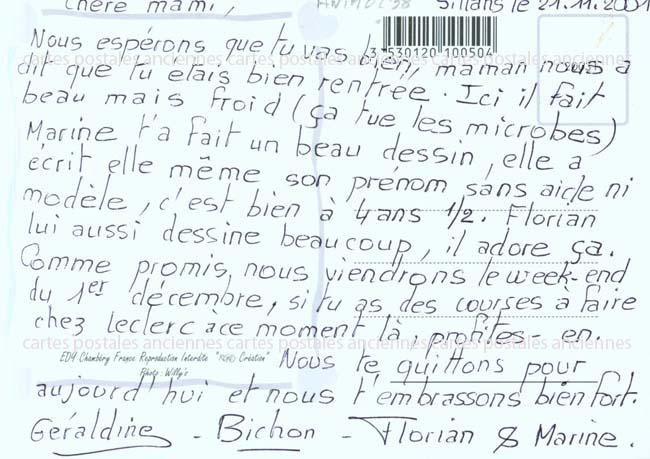 chère mami,
Sillans le 21.11.2001
ANIM0298
Nous espérons que tu vas bien, maman nous a
3 530120 100504
cartes postales anciennes cartes postales anciennes cartes postales anciennes
dit que tu etais bien rentrée. Ici il fait
beau mais froid (ça tue les microbes)
Marine t'a fait un beau dessin, elle a
écrit elle même son prénom sans aide ni
modèle, c'est bien à 4 ans 1/2. Florian
lui aussi dessine beaucoup, il adore ça.
Comme promis, nous viendrons le week-end
du 1er décembre, si tu as des courses à faire
chez leclerc à ce moment là, profites-en.
cartes postales anciennes cartes postales anciennes cartes postales anciennes
EDY Chambéry France Reproduction Interdite " Création"
Photo : Willy's
Nous te quittons pour
aujourd'hui et nous t'embrassons bien fort.
Géraldine - Bichon - Florian & Marine.